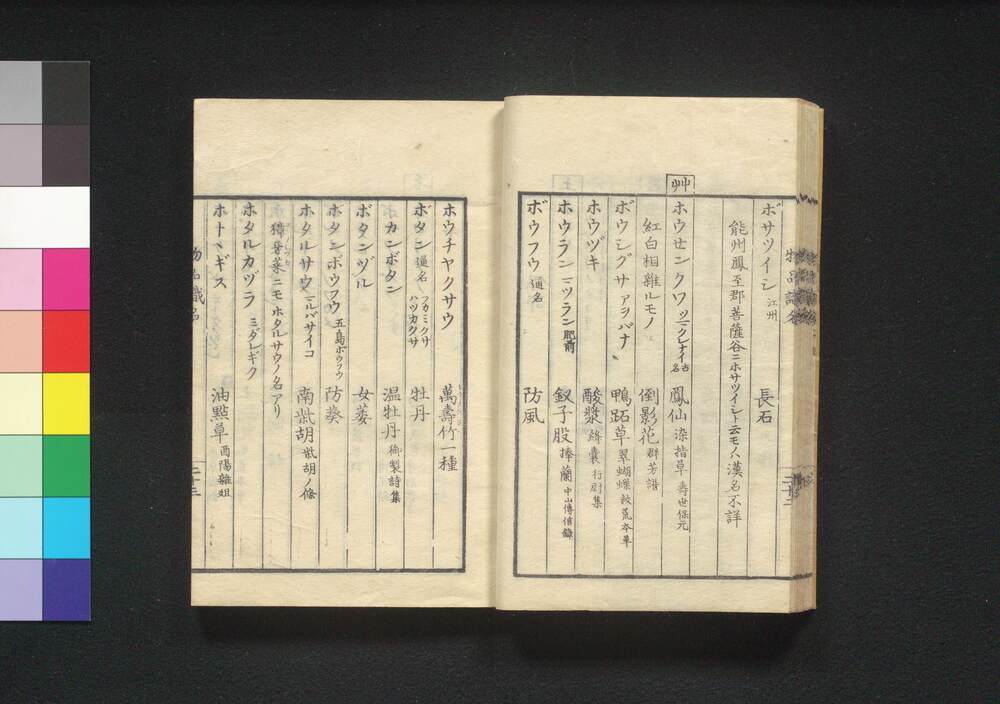 ボサツイシ 江州 長石
能州鳳至郡菩薩谷ニホサツイシト云モノ漢名不詳
艸
ホウセンクワ ツマクレナイ 古名 鳳仙 染指草 壽世保元
紅白相雜ルモノ 倒影花 群芳譜
ボウシグサ アヲバナ 鴨跖草 翠蝴蝶 救荒本草
ホウヅキ 酸漿 絳囊 行厨集
ホウラン マツラン 肥前 釵子股 捧蘭 中山傳信錄
ボウフウ 通名 防風
二十二
ホウチヤクサウ 萬壽竹一種
ボタン 通名 フカミクサ ハツカクサ 牡丹
カンボタン 温牡丹 御製詩集
ボタンヅル 女萎
ボタンボウフウ 五島ボウフウ 防葵
ホタルサウ マルバサイコ 南柴胡 柴胡ノ條
獐牙菜ニモホタルサウノ名アリ
ホタルカヅラ ミダレギク
ホトヽギス 油點草 酉陽雜俎
物品識名
二十三